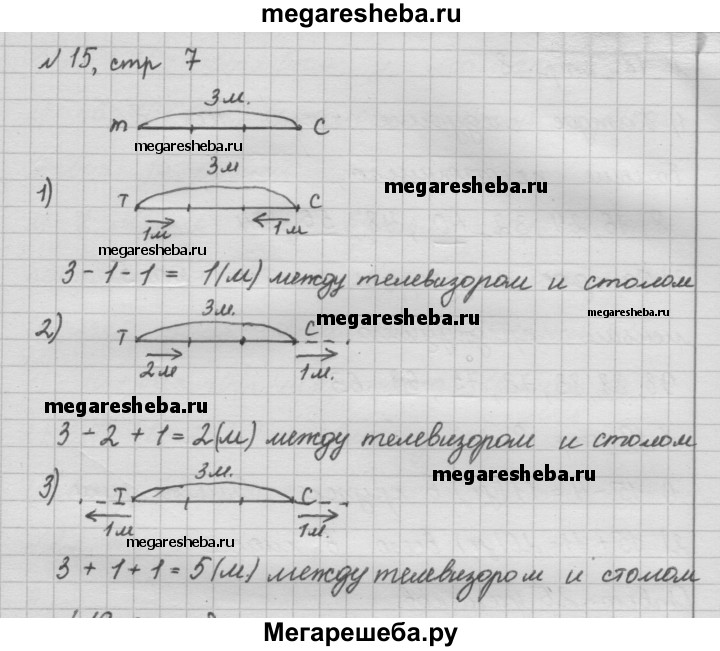 megaresheba.ru
№ 15, стр 7
3 м.
т С
megaresheba.ru
3 м
1) Т С
megaresheba.ru
1 м 1 м
megaresheba.ru
3 - 1 - 1 = 1 (м) между телевизором и столом
3 м.
2) Т С
megaresheba.ru
megaresheba.ru
2 м 1 м.
megaresheba.ru
3 - 2 + 1 = 2 (м) между телевизором и столом
3 м.
megaresheba.ru
3) Т С
1 м 1 м.
megaresheba.ru
3 + 1 + 1 = 5 (м) между телевизором и столом
Мегарешеба.ру